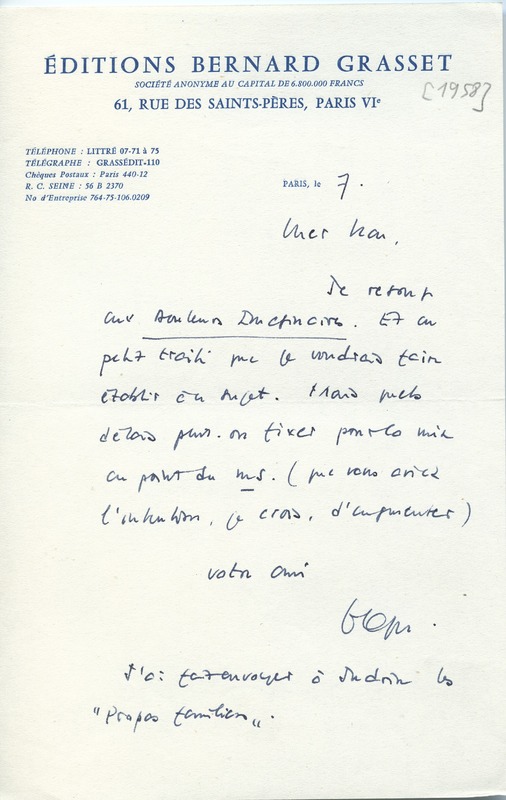 ÉDITIONS BERNARD GRASSET
SOCIÉTÉ ANONYME AU CAPITAL DE 6.800.000 FRANCS
61, RUE DES SAINTS-PÈRES, PARIS VIe
[1958]
TÉLÉPHONE : LITTRÉ 07-71 à 75
TÉLÉGRAPHE : GRASSÉDIT-110
Chèques Postaux : Paris 440-12
R. C. SEINE : 56 B 2370
No d'Entreprise 764-75-106.0209
PARIS, le 7.
Cher
Je retour
aux Douleurs Imaginaires. Et au
petit traité que je voudrais faire
établir à ce sujet. Mais quels
délais peut-on fixer pour la mise
au point du ms. (que vous aviez
l'intention, je crois, d'augmenter)
votre ami
J'ai fait envoyer à les
"Propos familiers".